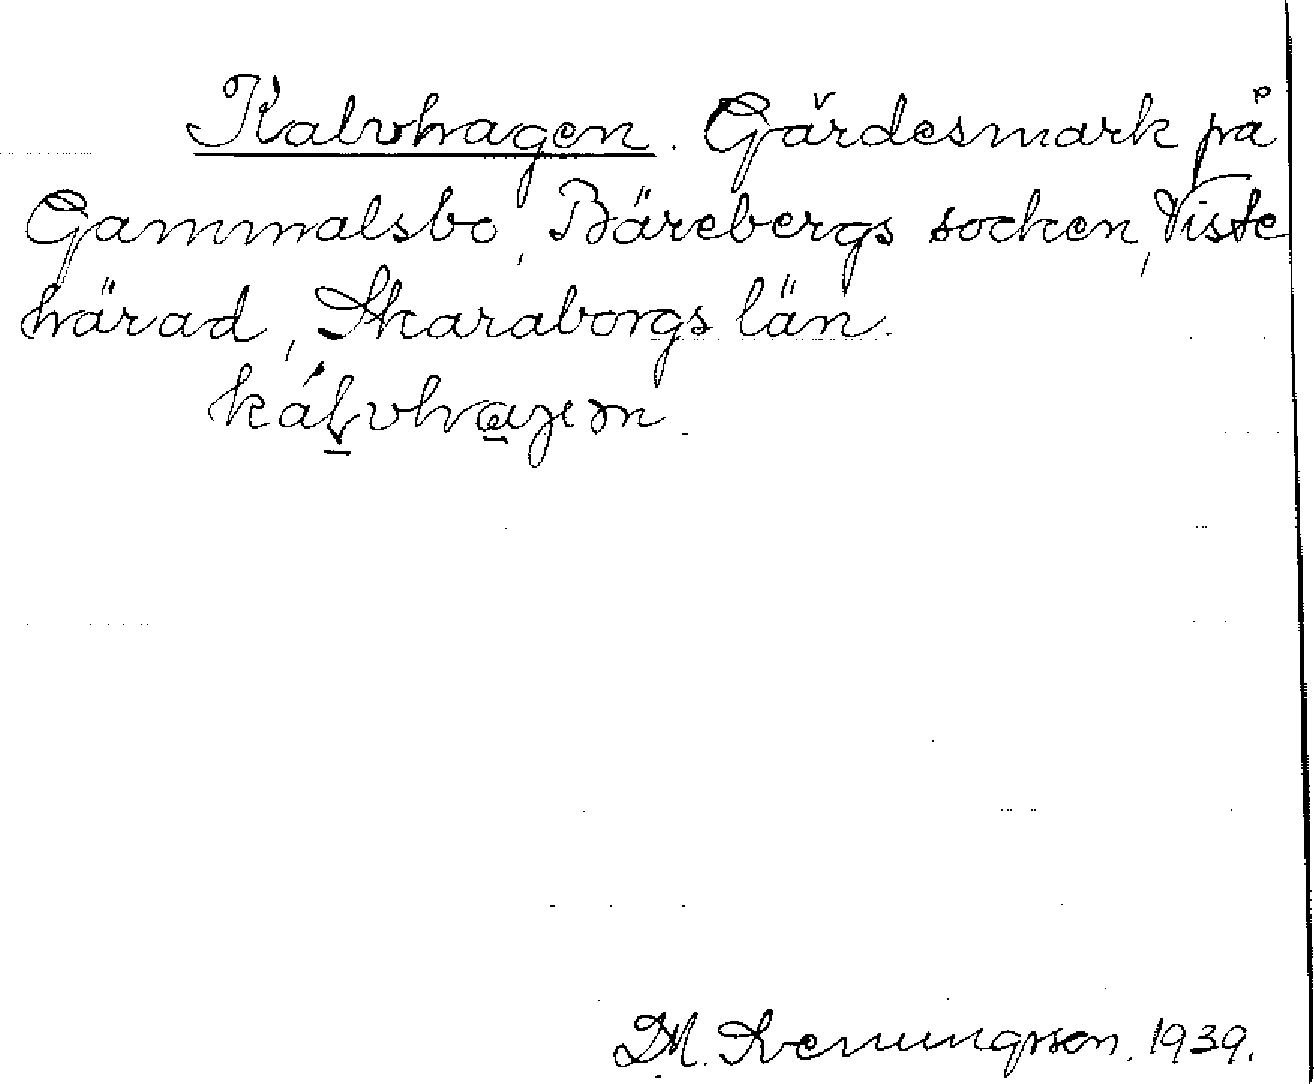 Kalvhagen. Gärdesmark på
Gammalsbo, Bärebergs socken, Viste
härad, Skaraborgs län.
kálvhagen.
D.M. Svenningsson. 1939.